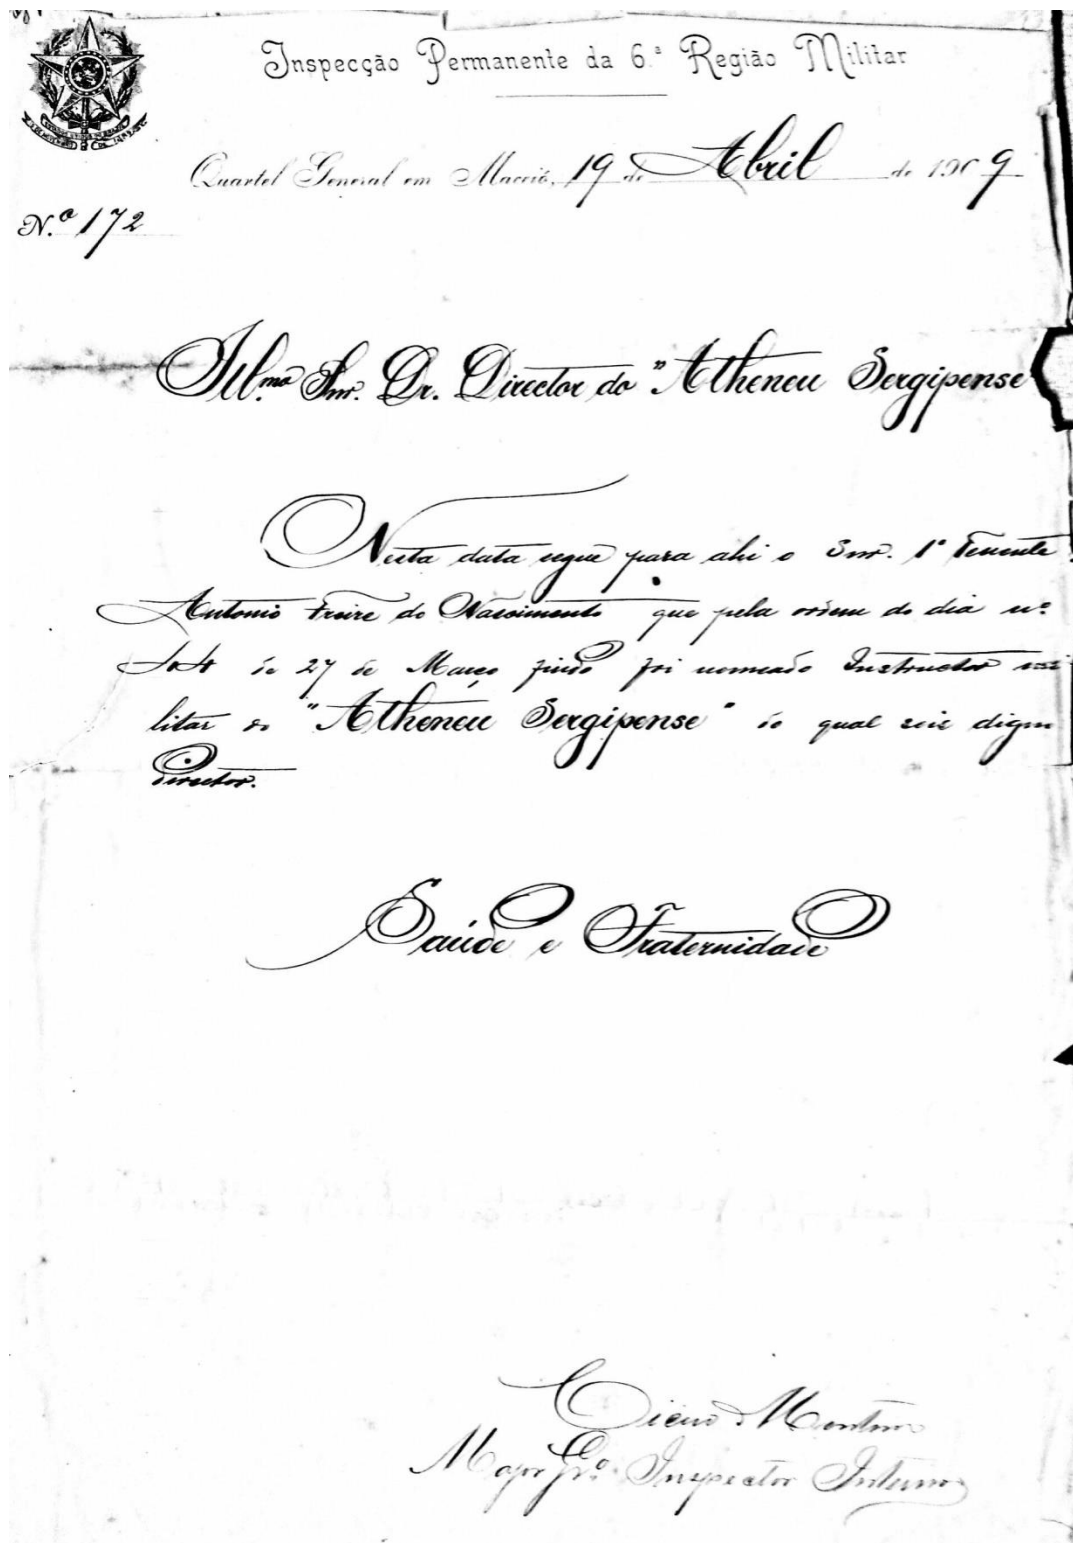 Inspecção Permanente da 6.ª Região Militar
Quartel General em Maceió, 19 de Abril de 1909
N.º 172
Ill.mo Snr. Dr. Director do "Atheneu Sergipense
Nesta data segue para ahi o Snr. 1º Tenente
Antonio Freire do Nascimento que pela ordem do dia nº
de 27 de Março findo foi nomeado Instructor mi
litar do "Atheneu Sergipense" do qual sois digno
Director.
Saúde e Fraternidade
Major Inspector Interino